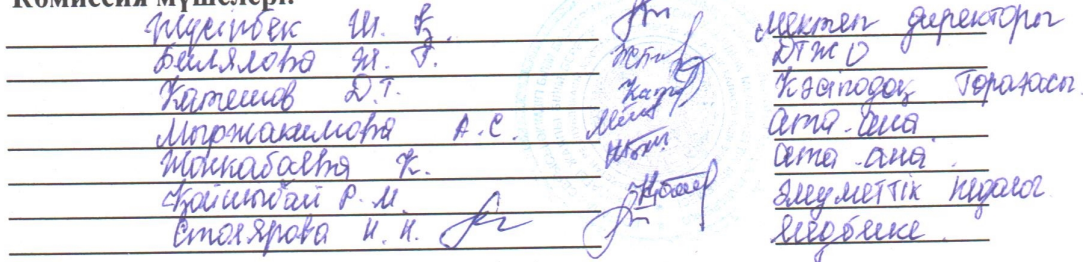 Комиссия мүшелері:
Жүсіпбек Ш. Қ. мектеп директоры
Билялова Ж. ДТЖО
Катешов Д.Т. Кәсіподақ төрағасы.
Мыржакимова А.С. ата-ана
Жанкабаева К. ата-ана.
Қойшыбай Р.М. әлеуметтік педагог
Столярова Н.Н. медбике.